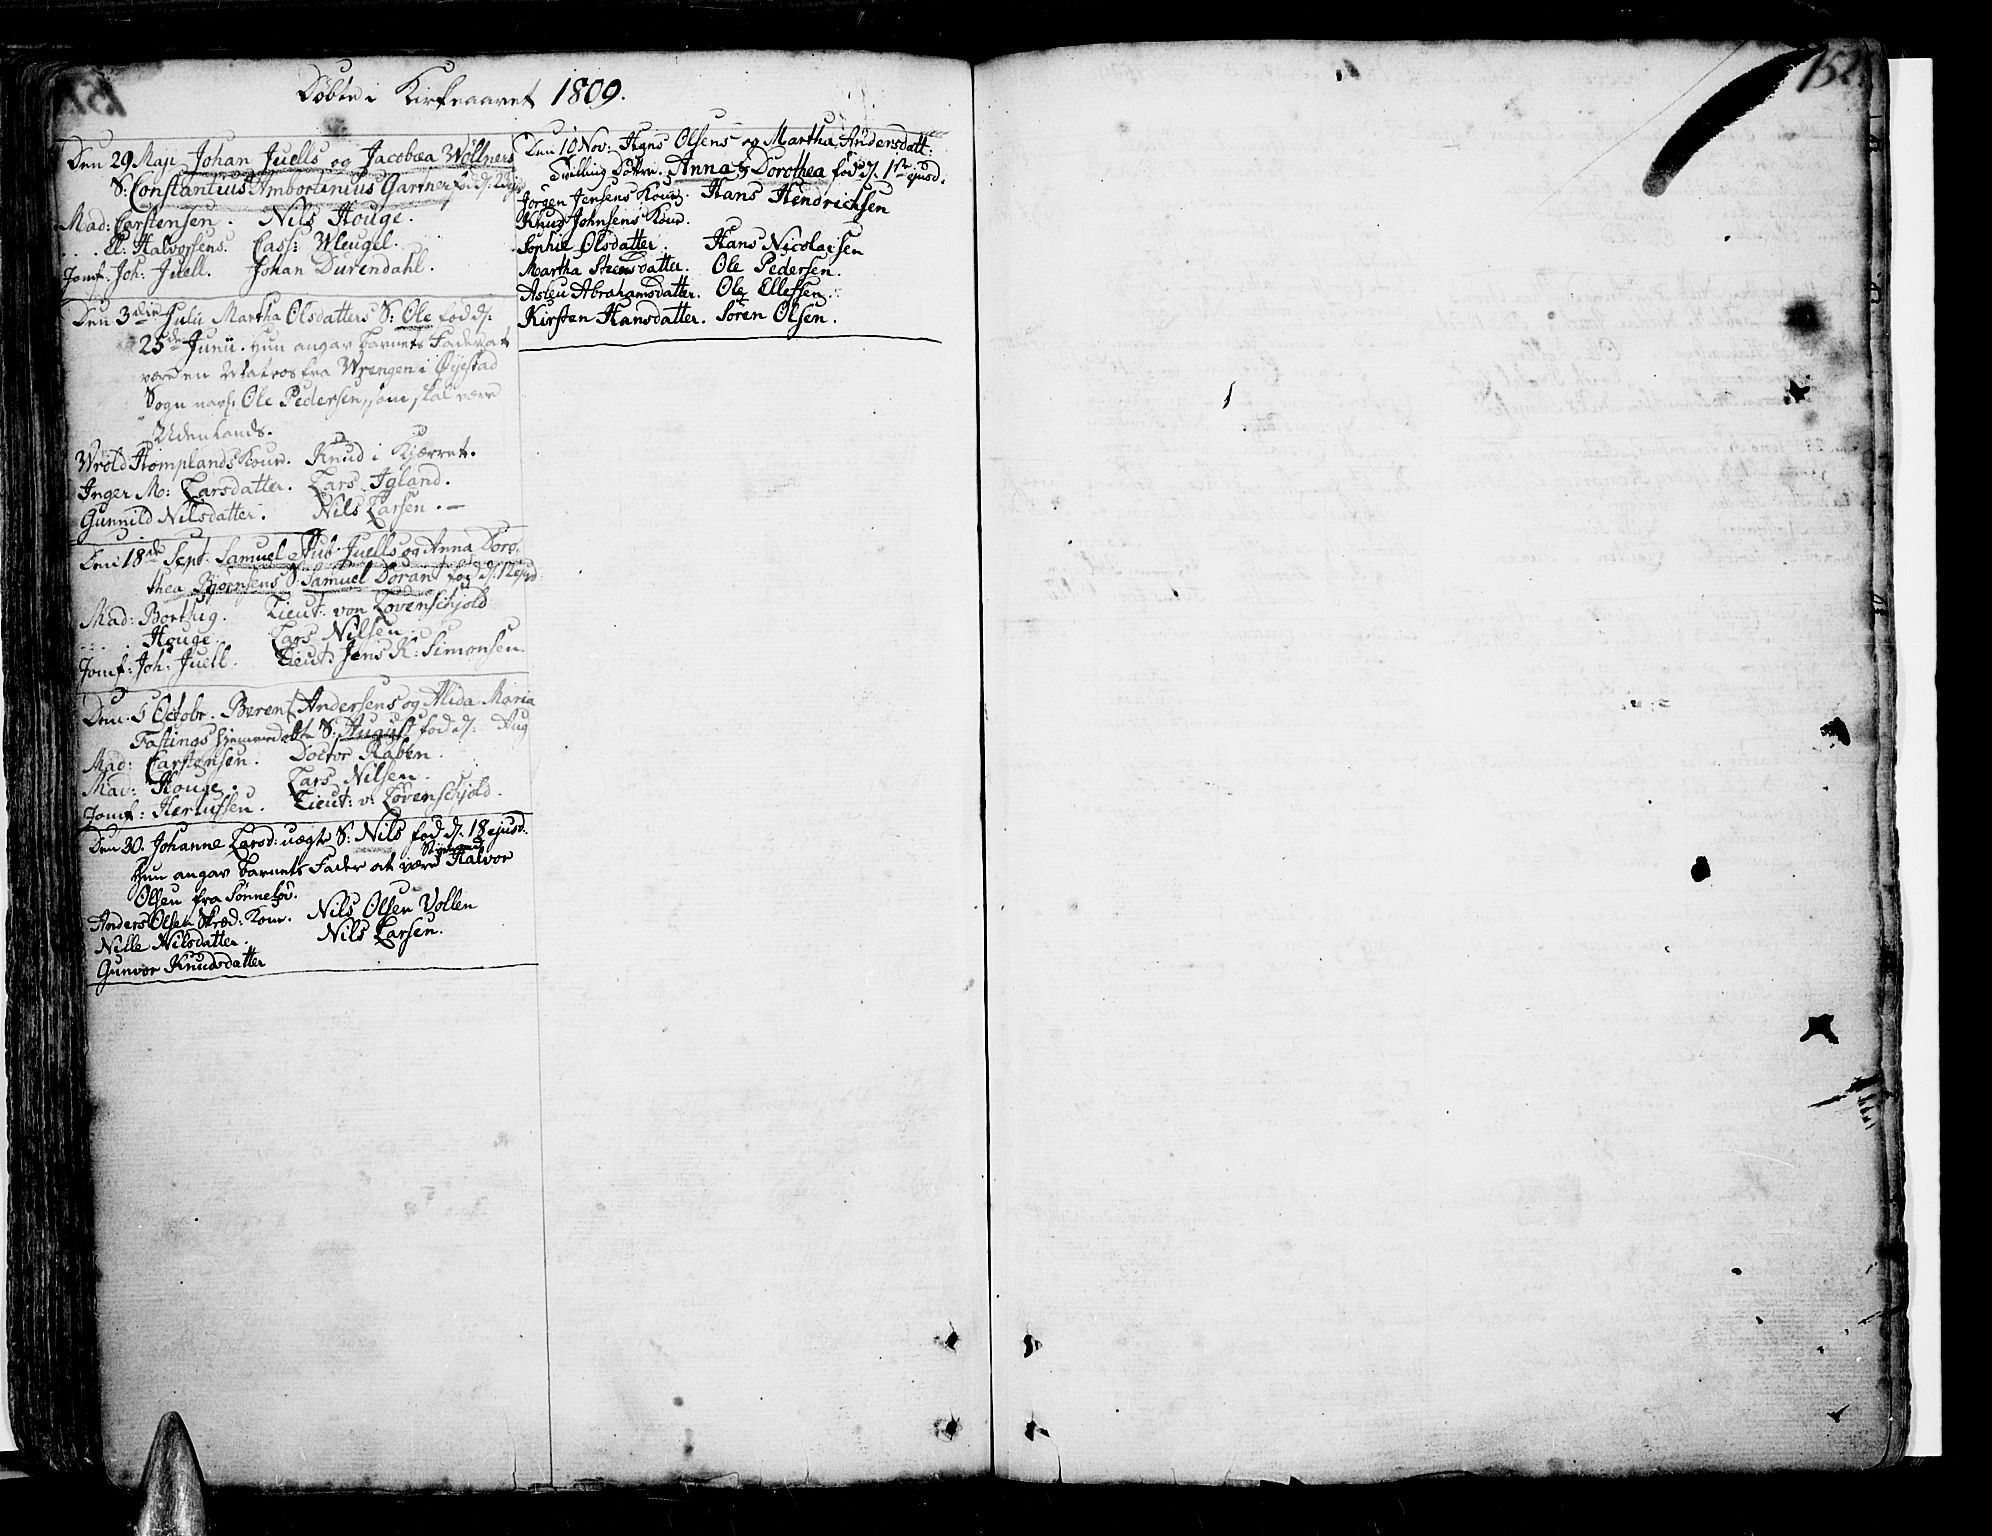 Døbte i Kirkeaaret 1809.
Den 29 Maji Johan Juells og Jacobæa Wöllners
S: Constantius Ambortinius Gartner fød d:
Mad: Carstensen. Nils Houge.
El: Halvorsens. Cass: Wleugel.
Jomf. Joh: Juell. Johan Durendahl.
Den 3die Julii Martha Olsdatters S: Ole fød d:
25de Junii. Hun angav Barnets Fader at
være en Matros fra Wrengen i Øyestad
Sogn navl: Ole Pedersen, som skal være
Udenlands.
Wrold Homplands Kone. Knud i Kjærret.
Inger M: Larsdatter. Lars Igland.
Gunnild Nilsdatter. Nils Larsen.
Den 18de Sept. Samuel Hub. Juells og Anna Doro,
thea Bjørnsens S: Samuel Dorant fød d. 12 ejusd
Mad: Borthig. Lieut: von Løvenschjold
Houge. Lars Nilsen
Jomf: Joh: Juell. Lieut: Jens K: Simonsen.
Den 5 Octobr. Berent Andersens og Alida Maria
Fastings hjemmedøbte S: August fød d: Aug
Mad: Carstensen. Doctor Raben.
Mad: Houge. Lars Nilsen.
Jomf: Herlufsen. Lieut: v: Løvenschjold.
Den 30. Johanne Larsd: uægte S: Nils fød d. 18 ejusd.
Hun angav Barnets Fader at være Halvor
Olsen fra Sønneløv.
Anders Olsen Skræd: Kone. Nils Olsen Vollen
Nille Nilsdatter. Nils Larsen.
Gunvor Knudsdatter
Den 10 Nov: Hans Olsens og Martha Andersdatt:
Tvilling Døttre. Anna & Dorothea fød d. 1ste ejusd.
Jørgen Jensens Kone. Hans Hendrichsen
Knud Johnsens Kone.
Sophie Olsdatter. Hans Nicolaisen
Martha Steensdatter. Ole Pedersen.
Aslau Abrahamsdatter. Ole Ellefsen.
Kirsten Hansdatter. Søren Olsen.